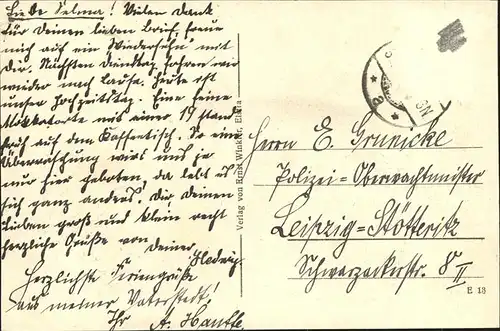 Liebe Selma! Vielen Dank
für Deinen lieben Brief, freue
mich auf ein Wiedersehn mit
Dir. Nächsten Dienstag fahren wir
wieder nach Hause. Heute ist
unser Hochzeitstag. Eine feine
Mokkatorte mit einer 19 stand
früh auf dem Kaffeetisch. So eine
Überraschung wird uns ja
nur hier geboten, da lebt es
sich ganz anders! Dir Deinen
Lieben groß und klein recht
herzliche Grüße von
Deiner Hedwig.
Herzlichste Feriengrüße
aus meiner Vaterstadt!
Ihr A. Hantke.
Verlag von Ernst Winkler,
Herrn E. Grunicke
Polizei-Oberwachtmeister
Leipzig-Stötteritz
Schwarzackerstr. 8 II
E 13